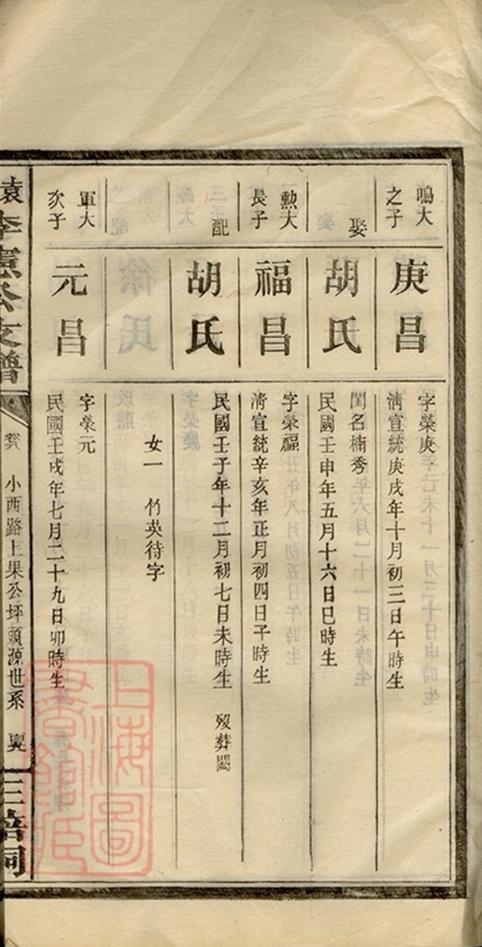 鳴大
之子
庚昌
字榮庚
清宣統庚戌年十月初三日午時生
娶
胡氏
閨名楠秀
民國壬申年五月十六日巳時生
勲大
長子
福昌
字榮福
清宣統辛亥年正月初四日子時生
配
胡氏
民國壬子年十二月初七日未時生 歿葬闕
女一 竹英待字
軍大
次子
元昌
字榮元
民國壬戌年七月二十九日卯時生
袁李憲公支譜
小西路上果公坪頭源世系
上海圖書館藏